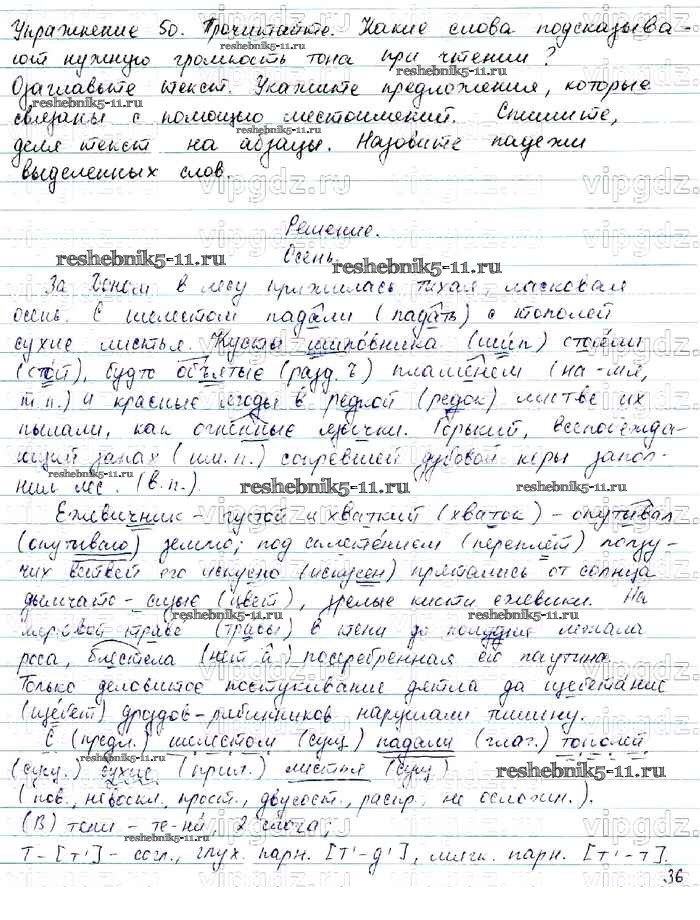 Упражнение 50. Прочитайте. Какие слова подсказыва-
reshebnik5-11.ru
ют нужную громкость тона при чтении?
Озаглавьте текст. Укажите предложения, которые
reshebnik5-11.ru
связаны с помощью местоимений. Спишите,
деля текст на абзацы. Назовите падежи
vipgdz.ru
выделенных слов.
Решение.
Осень.
reshebnik5-11.ru
За Доном в лесу прижилась тихая, ласковая
осень. С шелестом падали (падать) с тополей
сухие листья. Кусты шиповника (шип) стояли
(стой), будто объятые (разд. ъ) пламенем (на -мя,
т.п.) и красные ягоды в редкой (редок) листве их
пылали, как огненные язычки. Горький, всепобежда-
ющий запах (им.п.) сопревшей дубовой коры запол-
нил лес. (в.п.).
reshebnik5-11.ru
Ежевичник - густой и хваткий (хваток) - опутывал
(опутываю) землю; под сплетением (переплёт) ползу-
чих ветвей его искусно (искусен) прятались от солнца
дымчато-сизые (цвет), зрелые кисти ежевики. На
reshebnik5-11.ru
траве (травы) в тени до полудня лежала
роса, блестела (нет й) посеребренная ею паутина.
Только деловитое постукивание дятла да щебетание
(щебет) дроздов-рябинников нарушали тишину.
С (предл.) шелестом (сущ.) падали (глаг.) тополей
(сущ.) сухие (прил.) листья (сущ.)
reshebnik5-11.ru
(пов., невоскл., прост., двусост., распр., не осложн.).
(В) тени - те-ни, 2 слога;
т - [т'] - согл., глух. парн. [т'-д'], мягк. парн. [т'-т].
36